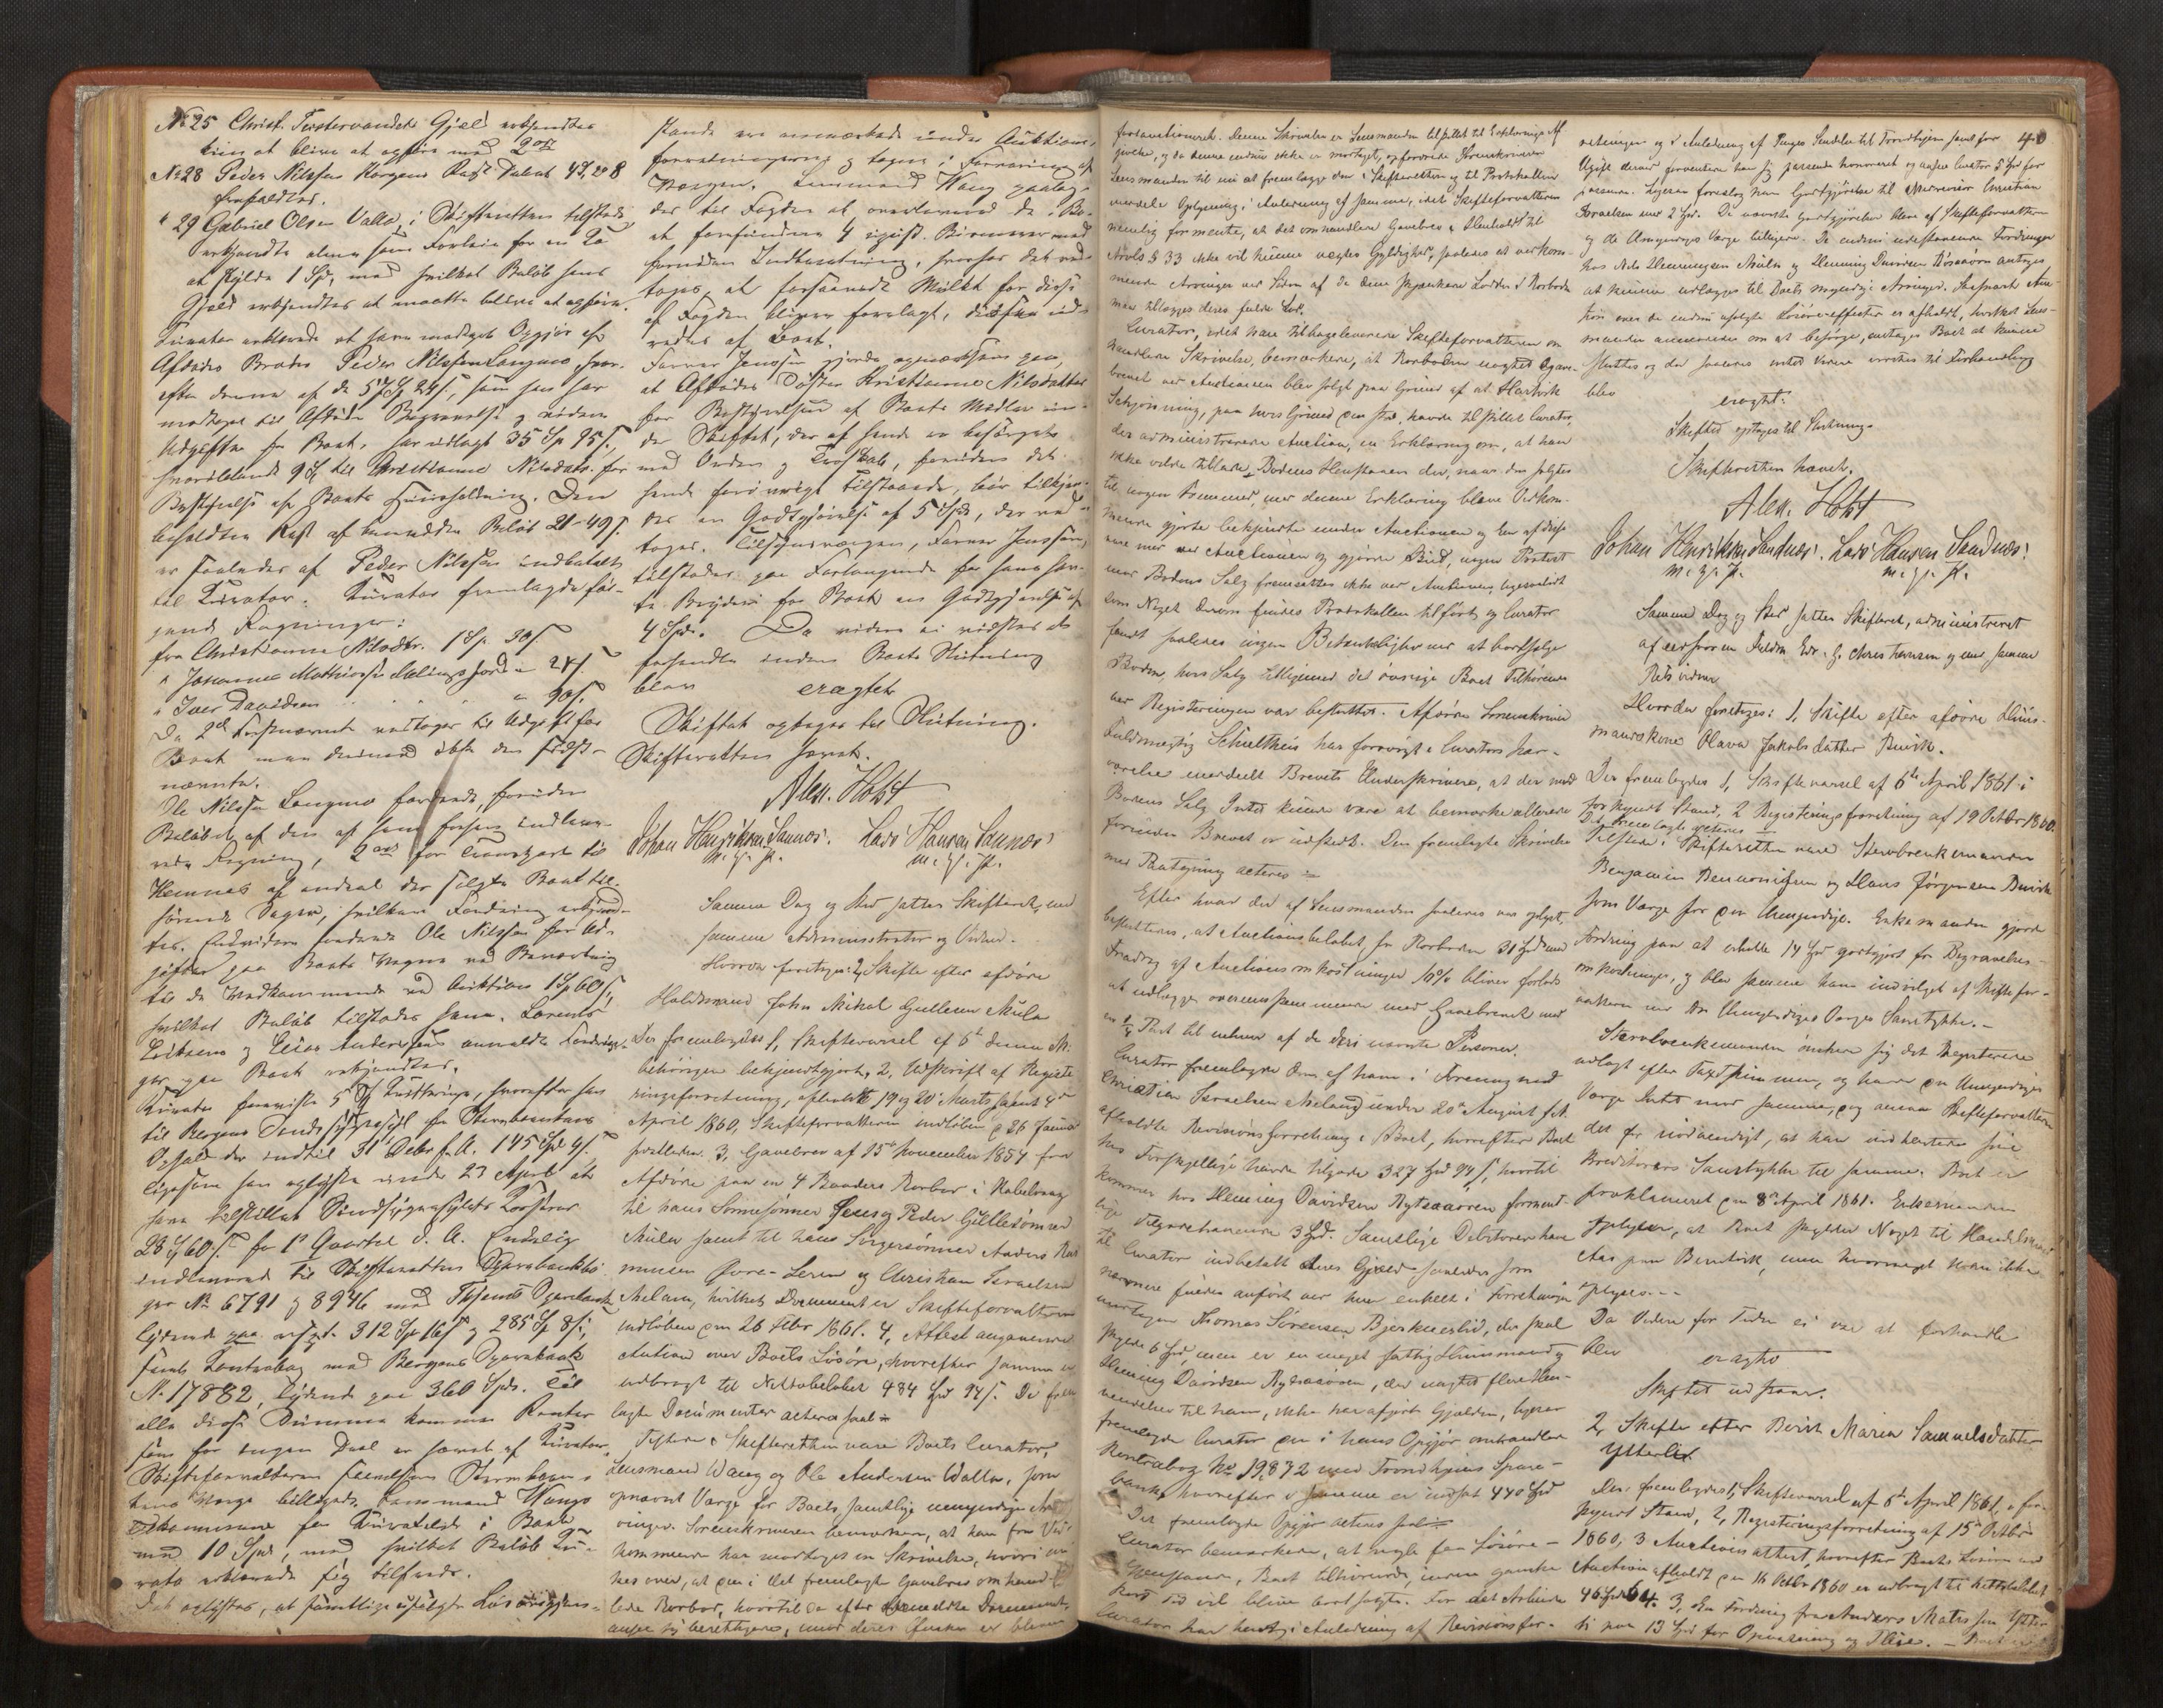 No 25 Christ. Tustervandets Gjeld erkjendtes
kun at blive at opføre med 2 ort
No 28 Peder Nilssen Korgens Rest Debet
frafaldtes.
" 29 Gabriel Olsen Valla, i Skifteretten tilstede
erkjendte alene som Forlein for en
at skylde 1 Spd, med hvilket Beløb hans
Gjeld erkjendtes at maatte blive at opføre.
Curator erklærede at have modtaget Opgjør af
Afdødes Broder Peder Nilssen Langmo
efter denne af de 57 Spd 24 s, som han har
modtaget til Afdødes Begravelse og videre
Udgifter for Boet, har udlagt 35 Sp 95 s,
9 Spd til Christianne Nilsdatr. for
Bestyrelse af Boets Huusholdning. Den
beholdne Rest af Beløb 21-49 s.
er saaledes af Peder Nilssen indbetalt
til Curator. Curator fremlagde føl-
gende Regninger:
fra Christianne Nilsdtr. 1 Sp. 30 s
" Johannes Mathiassen 24 s.
" Iver Davidsen " 90 s.
De 2de Førstnævnte vedtages til Udgift for
Boet men derimod ikke den sidst-
nævnte.
Ole Nilssen Langmo fordrede, foruden
Beløbet af den af ham forhen indleve-
rede Regning, 2 ort for Transport til
Hemnes af endeel der solgte Boet til-
hørende Sager, hvilken Fordring erkjend-
tes. Endvidere fordrede Ole Nilssen for Ud-
gifter paa Boets Vegne ved Bevertning
til de Vedkommende ved Auktionen 1 Sp 60 s,
hvilket Beløb tilstodes ham. Lorents
Eriksens og Elias Andersens anmeldte Fordrin-
ger paa Boet erkjendtes.
Curator foreviste 5 Kvitteringer, hvorefter han
til Bergens Sindssygeasyl for Stervboenkens
Ophold der indtil 31 Decbr f. A. 145 Spd 4 s.
ligesom han oplyste under 23 April at
have tilstillet Sindssygeasylets Bestyrer
28 Sp 60 s for 1ste Quartal d. A. Endelig
indleverede til Skifteretten Sparebankbø-
ger No 6791 og 8946 med Thjems Sparebank
lydende paa resp. 312 Sp 16 s og 285 Sp 8 s,
samt Kontrabog med Bergens Sparebank
No 17882, lydende paa 360 Spd. Til
alle disse Summer kommer Renter
som for ingen Deel er hævet af Curator.
Skifteforvalteren Stervboen-
kens Værge billigede Lensmand Wangs
for Curatelet i Boet
med 10 Spd, med hvilket Beløb Cu-
rator erklærede sig tilfreds.
Det oplystes, at samtlige usolgte Løsøregjen-
stande ere under Auktions-
forretningerne og tagne i Forvaring af
Værgen. Lensmand Wang paalag-
des til Fogden at oversende de i Bo-
et forefundne 4 Bismer med
foreneden Indberetning, hvorfor det ved-
toges, at forsaavidt Mulkt for disse
af Fogden bliver forelagt, disse ud-
redes af Boet.
Farver Jenssen gjorde opmærksom paa,
at Afdødes Datter Kristianne Nilsdatter
for Bestyrelsen af Boets Midler un-
der Skiftet, der af hende er besørget
med Orden og Troskab, foruden det
hende forøvrigt tilstaaede, bør tilkjen-
des en Godtgjørelse af 5 Spd, der ved-
toges. Tilsynsværgen, Farver Jenssen,
tilstodes paa Forlangende for hans hav-
te Bryderi for Boet en Godtgjørelse af
4 Spd. Da videre ei vidstes at
forhandle inden Boets Slutning
blev eragtet
Skiftet optages til Slutning.
Skifteretten hævet.
Alex. Holst
Johan Henriksen Sannes. Lars Hansen Sannes
m. p. P. m. p. P.
Samme Dag og Sted sattes Skifteret med
samme Administrator og Vidner.
Hvorda foretages: 2, Skifte efter afdøde
Huusmand John Mikal Gullesen Mula
Der fremlagdes 1, Skiftevarsel af 6te denne M.
behørigen bekjendtgjort, 2, Udskrift af Registe-
ringsforretning, afholdt 19 og 20 Marts samt 4de
April 1860, Skifteforvalteren indløben p. 26 Januar
3, Gavebrev af 15de November 1854 fra
Afdøde paa en 4 Baaders Rorbod i Kabelvaag
til hans Sønnesønner Jens og Peder Gullesønner
Mula samt til hans Svigersønner Anders Ras-
mussen Øvre-Leren og Christian Israelsen
Meland, hvilket Document er Skifteforvalteren
indløben den 26 Febr 1861. 4, Attest angaaende
Auction over Boets Løsøre, hvorefter samme er
udbragt til Nettobeløbet 484 Spd 94 s. De frem-
lagte Documenter acteres saal:
Tilstede i Skifteretten vare Boets Curator,
Lensmand Wang og Ole Andersen Walla, som
opnævnt Værge for Boets samtlige umyndige Ar-
vinger. Sorenskriveren bemærkede, at han fra Ved-
kommende har modtaget en Skrivelse, hvori
kes over, at den i det fremlagte Gavebrev omhand-
lede Rorbod, hvortil de efter bemeldte Document
anser sig berettigede, imod deres Ønsker er bleven
40
fortauctioneret. Denne Skrivelse er Lensmanden tilstillet til Erklæring Af-
givelse, og da denne endnu ikke er modtaget, opfordrede Sorenskriveren
Lensmanden til nu at fremlægge den i Skifteretten og til Protokollen
meddele Oplysning i Anledning af samme, idet Skifteforvalteren
nemlig formente, at det omhandlede Gavebrev i Henhold til
Arvels § 33 ikke vil kunne nægtes Gyldighed, saaledes at vedkom-
mende Arvinger ved Siden af de dem skjænkede Lodder i Rorboden
maa tillægges deres fulde Lod.
Curator, idet han tilbageleverede Skifteforvalteren om-
handlede Skrivelse, bemærkede, at Rorboden uagtet Gave-
brevet ved Auctionen blev solgt paa Grund af at Hartvik
Schjønning, paa hvis Grund den stod, havde tilstillet Curator,
der administrerede Auction, en Erklæring om, at han
ikke vilde tillade Bodens Henstaaen der, naar den solgtes
til nogen Fremmed, med denne Erklæring bleve Vedkom-
mende gjorte bekjendte under Auctionen og lov af disse
vare med ved Auctionen og gjorde Bud, nogen Protest
mod Bodens Salg fremsattes ikke ved Auctionen, ligesaalidt
som Noget derom findes Protokollen tilført og Curator
fandt saaledes ingen Betænkelighed ved at bortsælge
Boden, hvis Salg tilligemed det øvrige Boet Tilhørende
ved Registeringen var besluttet. Afdøde Sorenskriver
Fuldmægtig Schultheis har forøvrigt i Curators Nær-
værelse meddeelt Brevets Underskrivere, at der mod
Bodens Salg Intet kunde være at bemærke allerede
forinden Brevet er udstedt. Den fremlagte Skrivelse
med Paategning acteres:
Efter hvad der af Lensmanden saaledes var oplyst,
besluttedes, at Auctionsbeløbet for Rorboden 31 Spd med
Fradrag af Auctionsomkostninger 10% bliver forlods
at udlægge overensstemmende med Gavebrevet med
en ¼ Part til enhver af de deri nævnte Personer.
Curator fremlagde den af ham i Forening med
Christian Israelsen Meland under 20de August f. A.
afholdte Revisionsforretning i Boet, hvorefter Boet
hos Forskjellige havde tilgode 327 Spd 94 s, hvortil
kommer hos Henning Davidsen Rytsaasen forment-
lige Tilgodehavende 3 Spd. Samtlige Debitorer have
til Curator indbetalt deres Gjeld saaledes som
nærmere findes anført ved hver enkelt i Forretningen
undtagen Thomas Sørensen Bjerkneslid, der skal
skylde 6 Spd, men er en meget fattig Huusmand og
Henning Davidsen Rydsaasen, der uagtet flere Hen-
vendelser til ham, ikke har afgjort Gjælden, ligesaa
fremlagde Curator den i hans Opgjør omhandlede
Kontrabog No 19,872 med Trondhjems Spare-
bank, hvorefter i samme er indsat 440 Spd
Det fremlagte Opgjør acteres saal:
Curator bemærkede, at nogle faa Løsøre-
Gjenstande, Boet tilhørende, inden ganske
kort Tid vil blive bortsolgte. For det Arbeide
Curator har havt i Anledning af Revisionsfor-
retningen og i Anledning af Penges Sendelse til Trondhjem samt for
Udgift derved forventede han sig passende honoreret og ansaa Curator 5 Spd for
passende. Ligesaa foreslog han Godtgjørelse til Medrevisor Christian
Israelsen med 2 Spd. De nævnte Godtgjørelser bleve af Skifteforvalteren
og de Umyndiges Værge billigede. De endnu udestaaende Fordringer
hos Nils Henningsen Mula og Henning Davidsen Rosaaen antoges
at kunne udlægges til Boets myndige Arvinger. Saasnart Auc-
tion over de endnu usolgte Løsøreeffecter er afholdt, hvorved Lens-
manden anmodedes om at besørge, antoges Boet at kunne
sluttes og der saaledes intet videre vidstes til Forhandling
blev eragtet:
Skiftet optages til Slutning.
Skifteretten hævet.
Alex. Holst
Johan Henriksen Sandnæs. Lars Hansen Sandnæs.
m. p. P. m. p. P.
Samme Dag og Sted sattes Skifteret, administreret
af edsvoren Fuldm. Edv. G. Christensen og med samme
Retsvidner
Hvorda foretages: 1, Skifte efter afdøde Huus-
mandskone Olava Jakobsdatter Buvik.
Der fremlagdes 1, Skiftevarsel af 6te April 1861 i
forkyndt Stand, 2 Registeringsforretning af 19 Octbr 1860.
Det fremlagte acteres
Tilstede i Skifteretten vare Stervboenkemanden
Benjamin Benonisen og Hans Jørgensen Buvik
som Værge for den Umyndige. Enkemanden gjorde
Fordring paa at erholde 14 Spd godtgjort for Begravelses-
omkostninger, og blev samme ham indvilget af Skiftefor-
valteren med den Umyndiges Værges Samtykke.-
Stervboenkemanden ønskede sig det Registerede
udlagt efter Taxtsummen, og havde den Umyndiges
Værge Intet mod samme, dog ansaa Skifteforvalteren
det for nødvendigt, at han indhentede sine
Kreditorers Samtykke til samme. Boet er
proklameret den 8de April 1861. Enkemanden
oplyste, at Boet skylder Noget til Handelsmand
Aas paa Bundvik, men hvormeget kan ikke
oplyses.--
Da Videre for Tiden ei var at forhandle
blev eragtet
Skiftet udstaar.
2, Skifte efter Berit Maria Samuelsdatter
Ytterlid.
Der fremlagdes 1, Skiftevarsel af 6te April 1861, i for-
kyndt Stand, 2, Registeringsforretning af 15de Octbr
1860, 3 Auctionsattest, hvorefter Boets Løsøre ved
Auction afholdt den 16 Octbr 1860 er udbragt til Nettobeløbet
46 Spd 64. 3, En Fordring fra Anders Matisen Ytter-
li paa 13 Spd for Opvartning og Pleie. - Boet